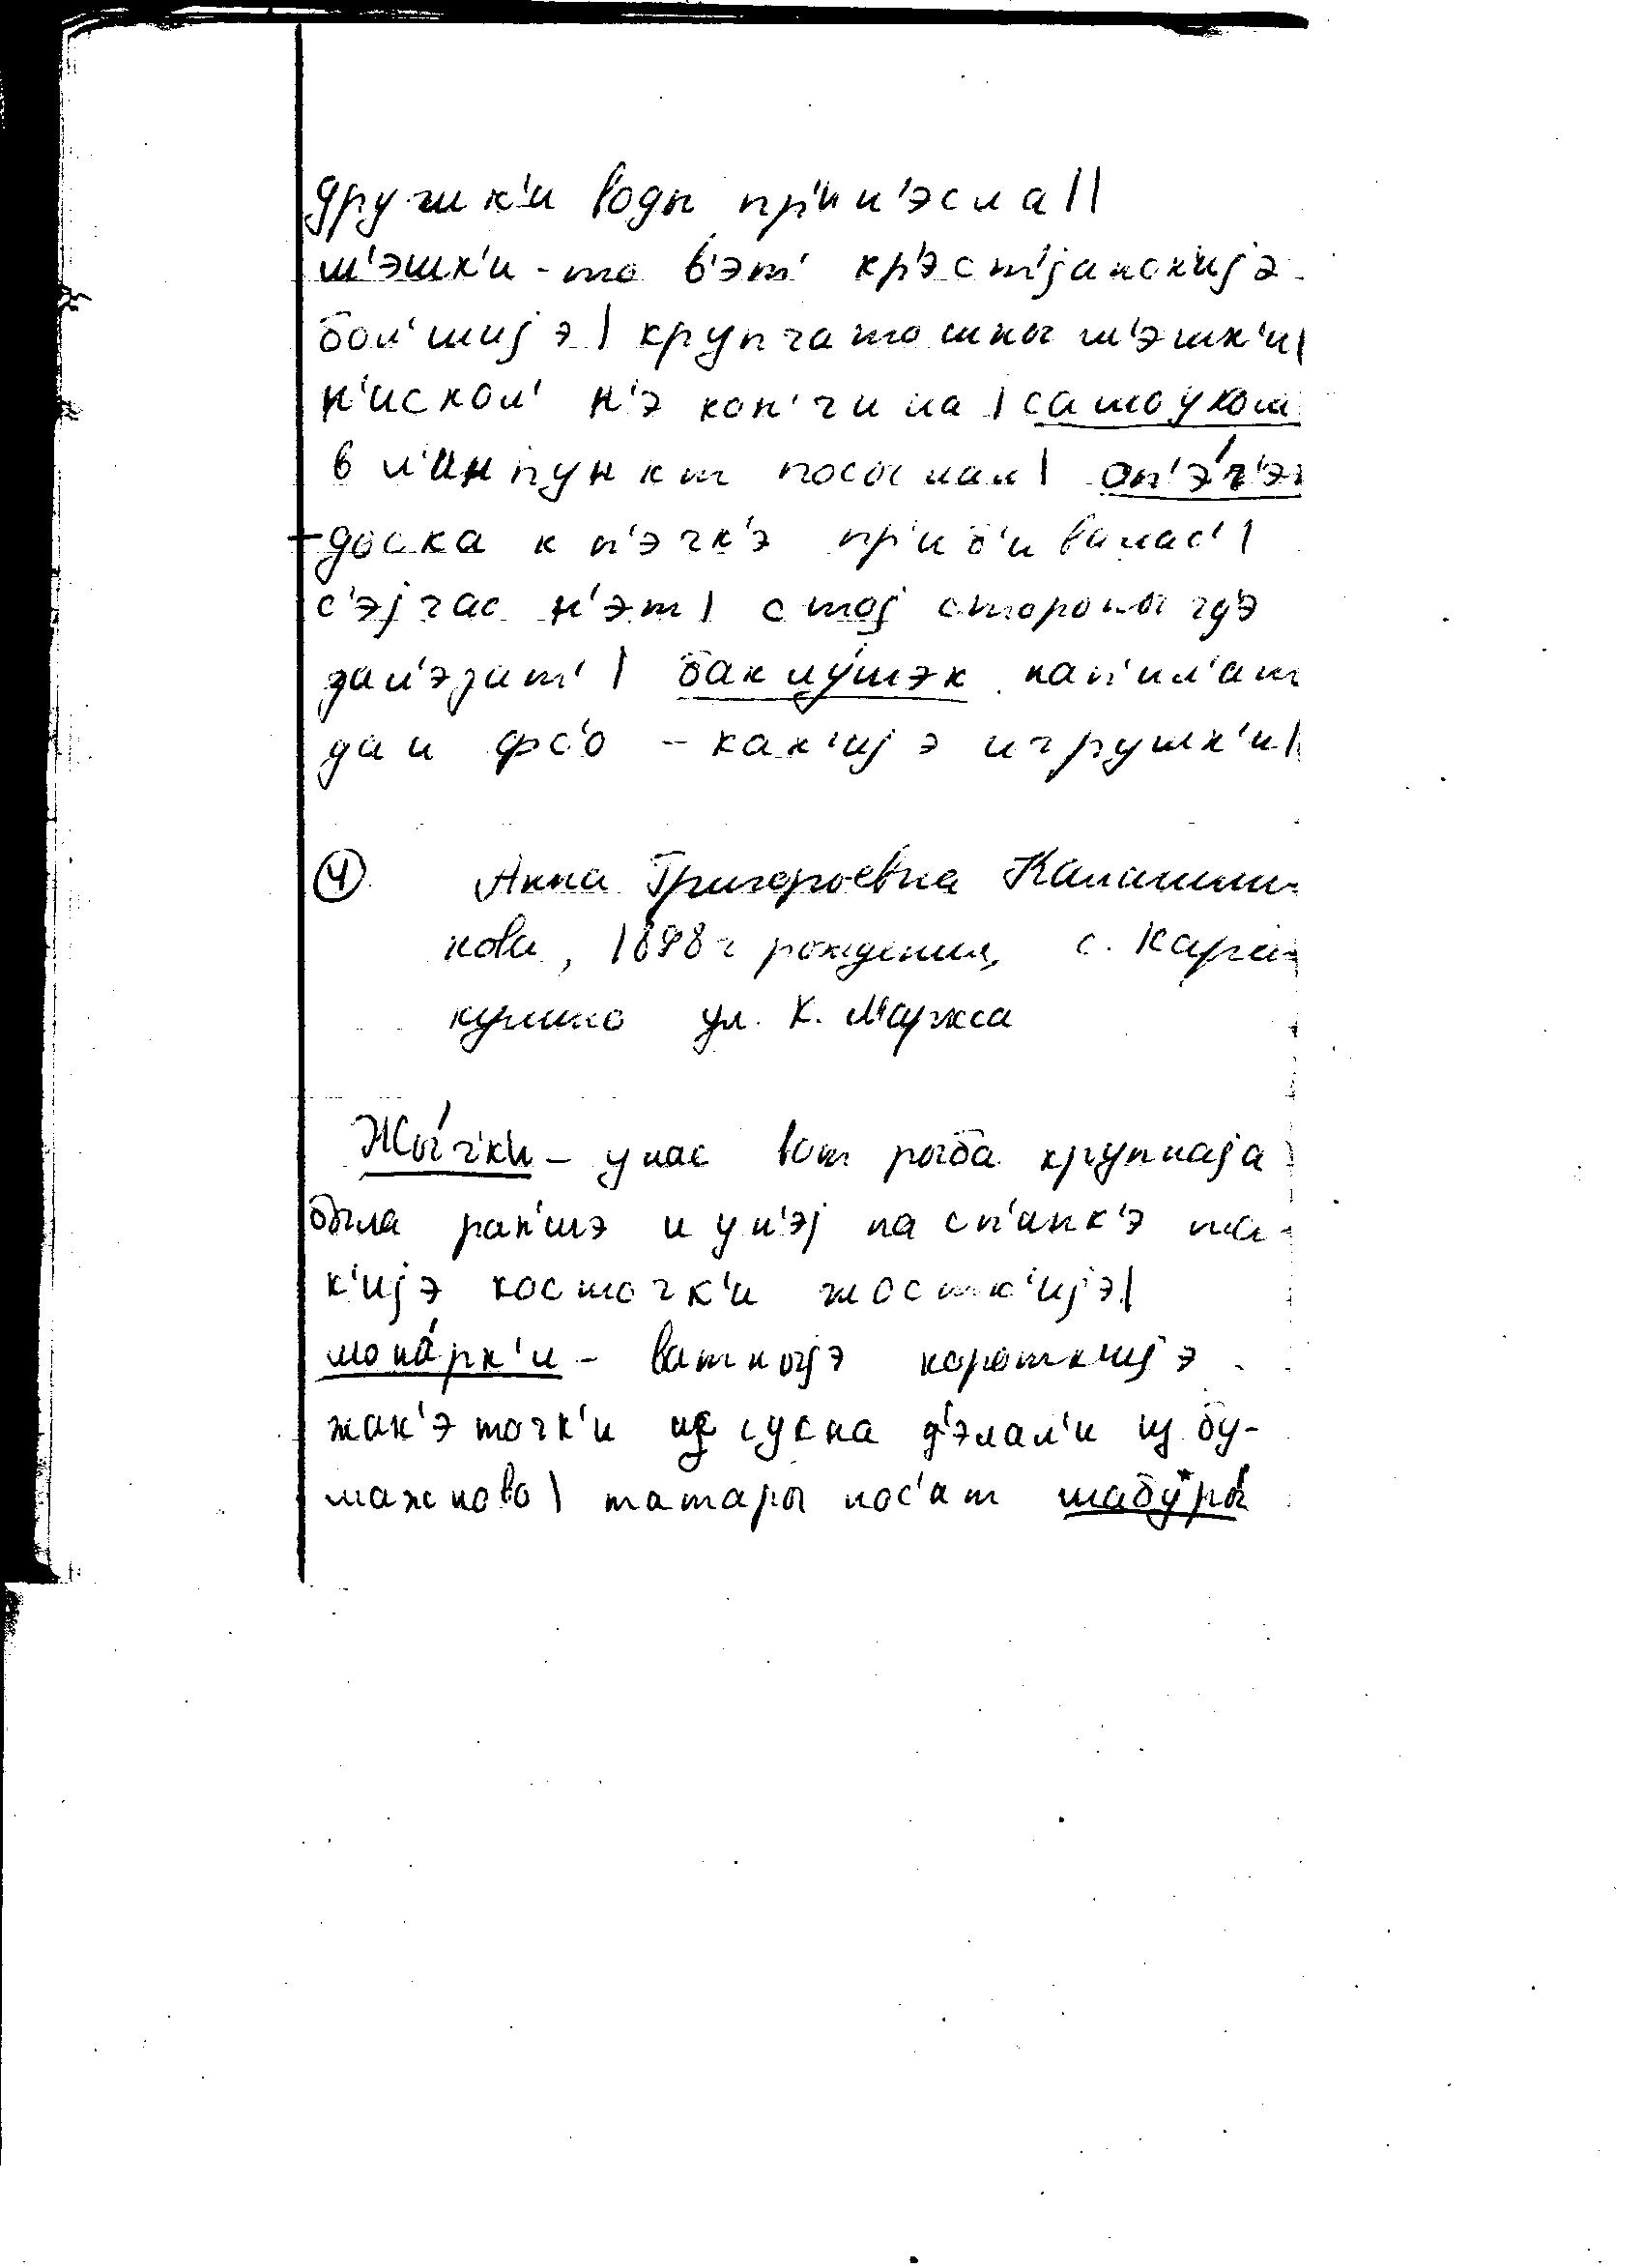 дружк'и воды пр'ин'эсла||
м'эшк'и-то в'эт' кр'эст'јанск'ијэ
бол'шијэ| крупчатошны м'эшк'и|
н'искол' н'э кон'чила |самоуком
в л'икпункт посылал| оп'э́ч'эк
доска к п'эчк'э пр'иб'ивалас'|
с'эјчас н'эт| с тој стороны гд'э
зал'эзат'| баклу́шэк нап'ил'ат
да и фс'о - как'ијэ игрушк'и|
④ Анна Григорьевна Калашни-
кова, 1898 г рождения, с.
ул. К. Маркса
Жы́чк'и - у нас вот рыба крупнаја
была ран'шэ и у н'эј на сп'инк'э та-
к'ијэ косточк'и жостк'ијэ|
мона́рк'и - ватныјэ коротк'ијэ
жак'эточк'и из сукна д'элал'и из бу-
мажново| татары нос'ат шабуры́